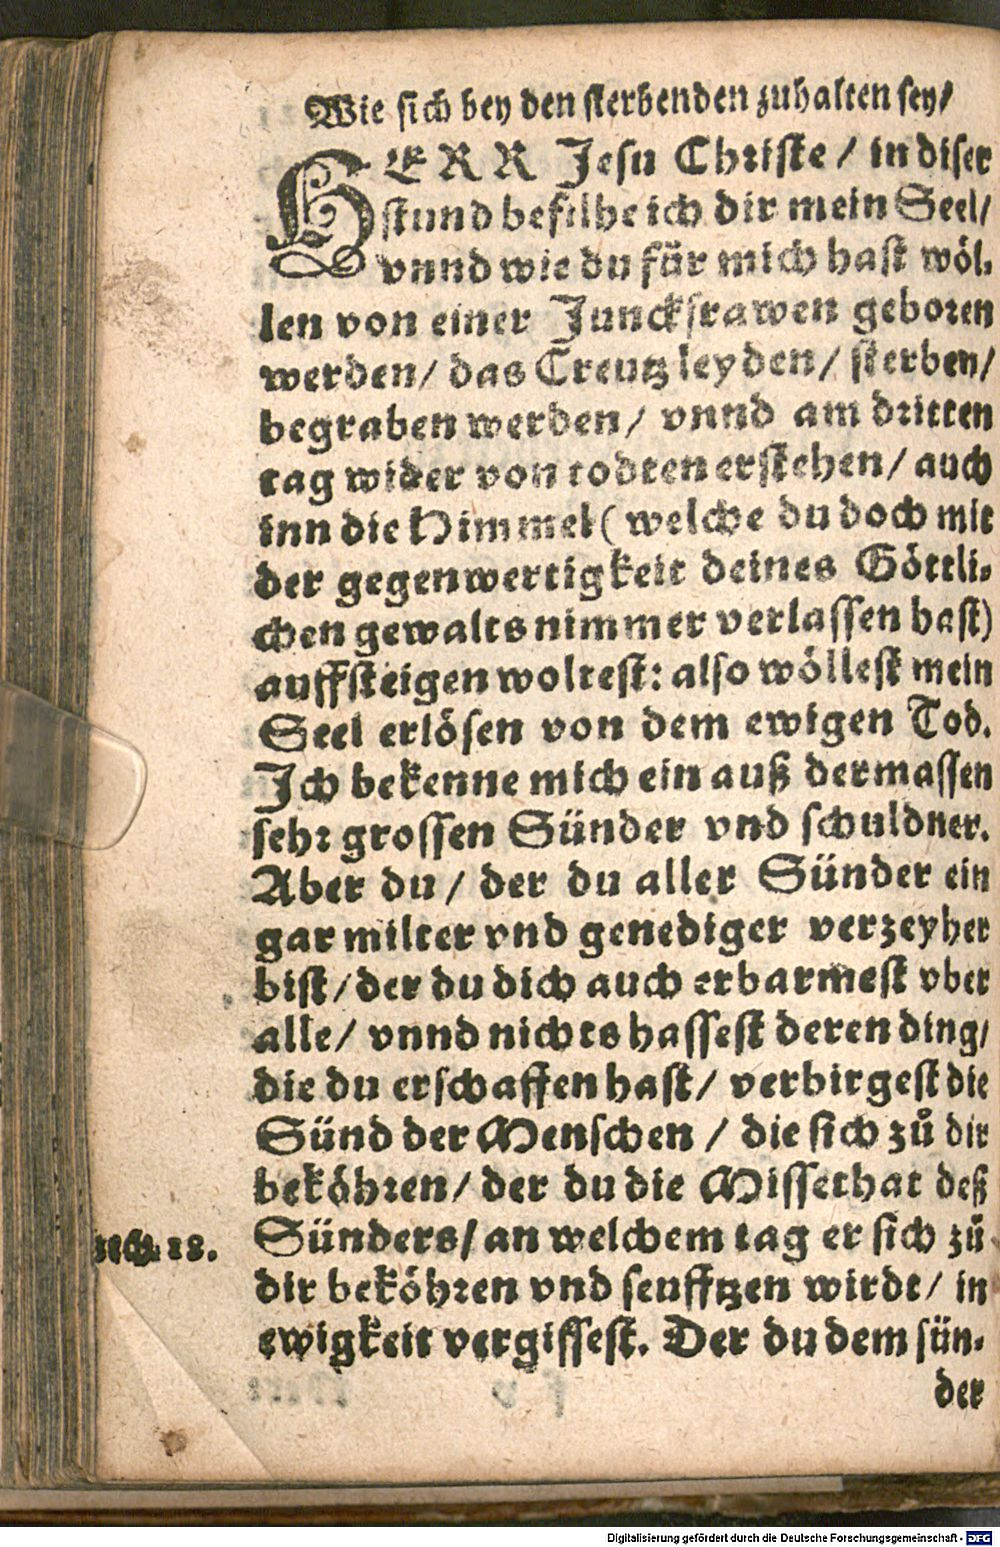 Wie sich bey den sterbenden zuhalten sey/
HERR Jesu Christe / in diser
stund befilhe ich dir mein Seel/
vnnd wie du für mich hast wöl-
len von einer Junckfrawen geboren
werden/ das Creutz leyden/ sterben/
begraben werden/ vnnd am dritten
tag wider von todten erstehen/ auch
inn die Himmel (welche du doch mit
der gegenwertigkeit deines Göttli-
chen gewalts nimmer verlassen hast)
auffsteigen woltest: also wöllest mein
Seel erlösen von dem ewigen Tod.
Ich bekenne mich ein auß dermassen
sehr grossen Sünder vnd schuldner.
Aber du/ der du aller Sünder ein
gar milter vnd genediger verzeyher
bist/ der du dich auch erbarmest vber
alle/ vnnd nichts hassest deren ding/
die du erschaffen hast/ verbirgest die
Sünd der Menschen / die sich zů dir
beköhren/ der du die Missethat deß
Sünders/ an welchem tag er sich zů
18.
dir beköhren vnd seufftzen wirdt/ in
ewigkeit vergissest. Der du dem sün-
der
Digitalisierung gefördert durch die Deutsche Forschungsgemeinschaft - DFG